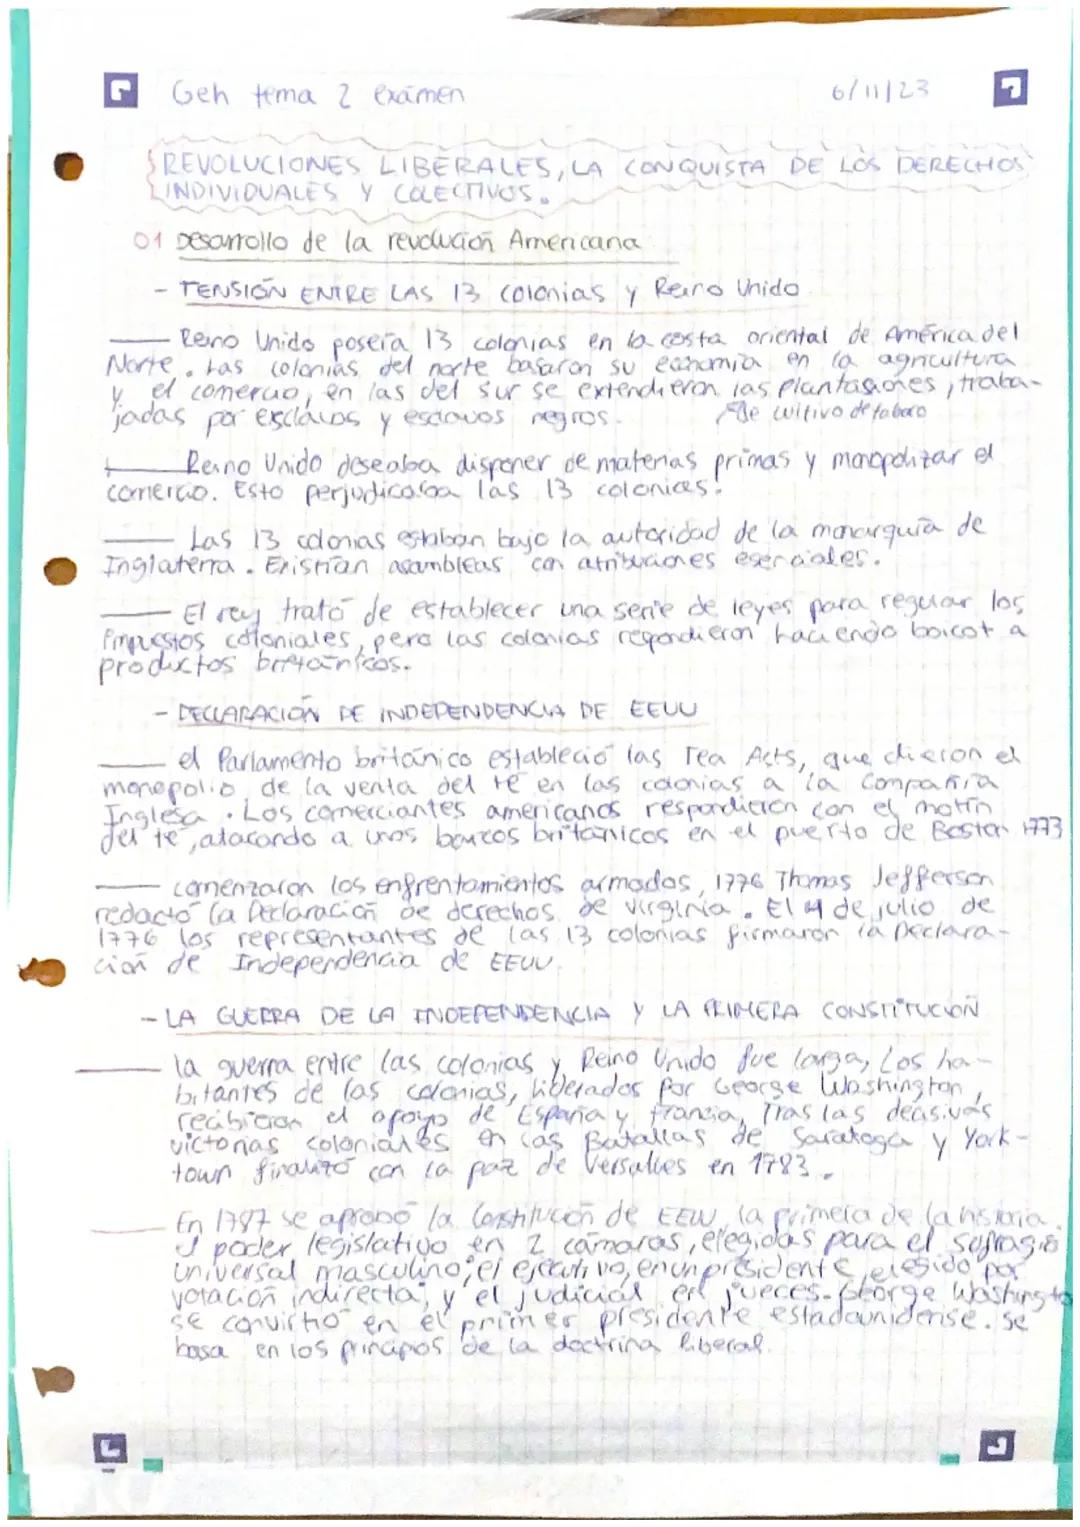 Geh tema 2 exámen 6/11/23
REVOLUCIONES LIBERALES, LA CONQUISTA DE LOS DERECHOS
INDIVIDUALES Y COLECTIVOS.
01 Desarrollo de la revolución Americana
- TENSIÓN ENTRE LAS 13 colonias y Reino Unido
Reino Unido poseía 13 colonias en la costa oriental de América del
Norte. Las colonias del norte basaron su economía en la agricultura
y el comercio, en las del sur se extendieron las plantaciones, traba-
jadas por esclavos y esclavos negros. de cultivo de tabaco
Reino Unido deseaba disponer de materias primas y monopolizar el
comercio. Esto perjudicaba las 13 colonias.
Las 13 colonias estaban bajo la autoridad de la monarquía de
Inglaterra. Existían asambleas con atribuciones esenciales.
El rey trató de establecer una serie de leyes para regular los
impuestos coloniales, pero las colonias respondieron haciendo boicot a
productos británicos.
- DECLARACIÓN DE INDEPENDENCIA DE EEUU
el Parlamento británico estableció las Tea Acts, que dieron el
monopolio de la venta del té en las colonias a la Compañía
Inglesa. Los comerciantes americanos respondieron con el motín
del té, atacando a unos barcos británicos en el puerto de Boston 1773
comenzaron los enfrentamientos armados, 1776 Thomas Jefferson
redactó la Declaración de derechos de virginia. El 4 de julio de
1776 los representantes de las 13 colonias firmaron la Declara-
ción de Independencia de EEUU.
- LA GUERRA DE LA INDEPENDENCIA Y LA PRIMERA CONSTITUCIÓN
la guerra entre las colonias y Reino Unido fue larga, Los ha-
bitantes de las colonias, liderados por George Washington,
recibieron el apoyo de España y francia, Tras las decisivas
victorias coloniales en las Batallas de Saratoga y York-
town finalizó con la paz de Versalles en 1783.
En 1787 se aprobó la Constitución de EEUU, la primera de la historia.
el poder legislativo en 2 cámaras, elegidas para el sufragio
universal masculino; el ejecutivo, en un presidente elegido por
votación indirecta, y el judicial en jueces. George Washingto
se convirtió en el primer presidente estadounidense. Se
basa en los principios de la doctrina liberal.